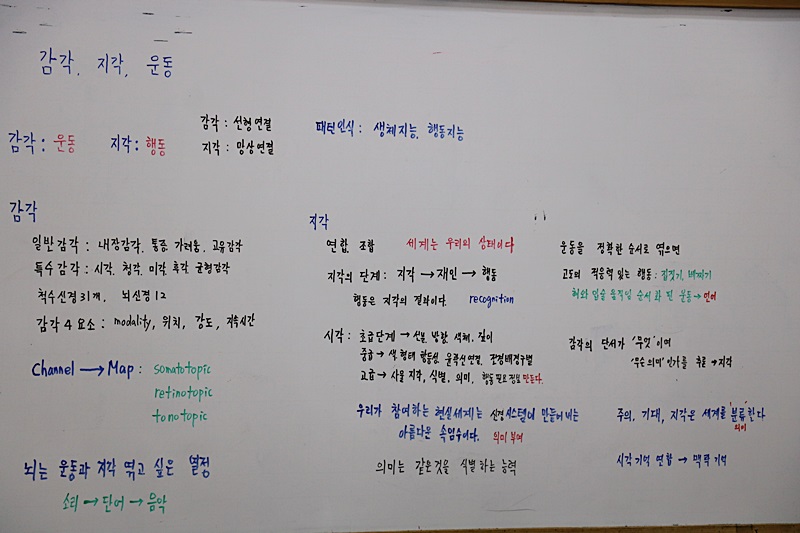 감각, 지각, 운동
감각 : 운동
지각 : 행동
감각 : 선형연결
지각 : 망상연결
패턴인식 : 생체지능, 행동지능
감각
일반감각 : 내장감각, 통증, 가려움, 고유감각
특수감각 : 시각, 청각, 미각, 후각, 균형감각
척수신경31개, 뇌신경12
감각4요소 : modality, 위치, 강도, 지속시간
Channel → Map : somatotopic
retinotopic
tonotopic
뇌는 운동과 지각 엮고 싶은 열정
소리 → 단어 → 음악
지각
연합, 조합
세계는 우리의 상태이다
지각의 단계 : 지각 → 재인 → 행동
행동은 지각의 결과이다.
recognition
시각 : 초급단계 → 선분, 방향, 색채, 깊이
중급 → 색, 형태 윤곽선연결, 전경배경구별
고급 → 사물 지각, 식별, 의미, 행동 필요 정보 만든다.
우리가 참여하는 현실세계는 신경시스템이 만들어내는
아름다운 속임수이다.
의미 부여
의미는 같은것을 식별하는 능력
운동을 정확한 순서로 엮으면
고도의 적응력 있는 행동 : 집짓기,
혀와 입술 움직임 순서화 된 운동 → 언어
감각의 단서가 '무엇'이며
'무슨 의미'인가를 추론 → 지각
주의, 기대, 지각은 세계를 '분류'한다
의미
시각기억 연합 → 맥락기억